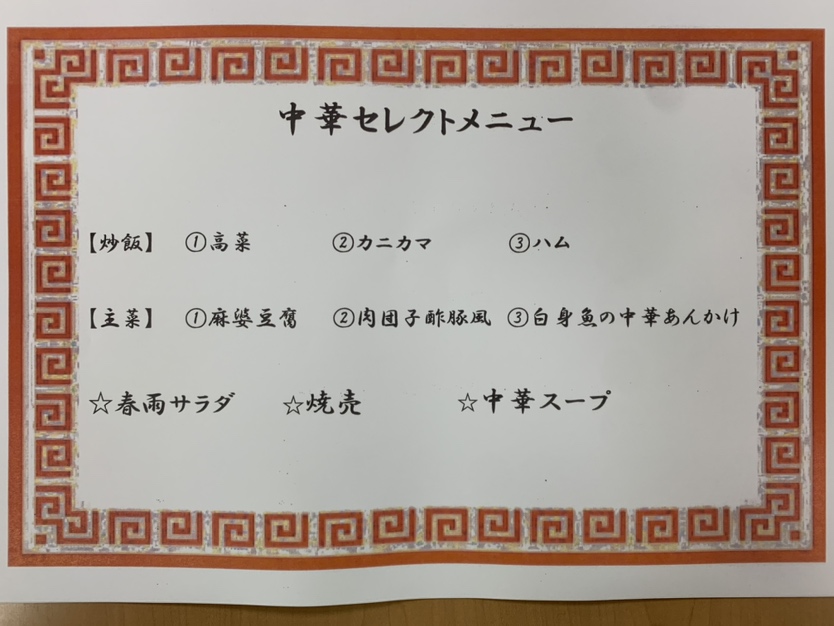 中華セレクトメニュー
【炒飯】 ①高菜 ②カニカマ ③ハム
【主菜】 ①麻婆豆腐 ②肉団子酢豚風 ③白身魚の中華あんかけ
☆春雨サラダ ☆焼売 ☆中華スープ